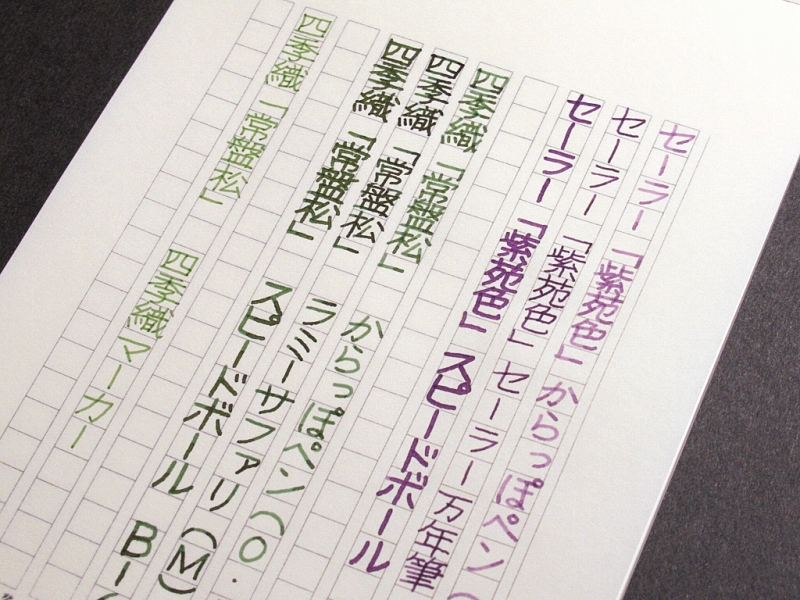 セーラー「紫苑色」からっぽペン(
セーラー「紫苑色」セーラー万年筆
セーラー「紫苑色」スピードボール
四季織「常盤松」からっぽペン(0.
四季織「常盤松」ラミーサファリ(M)
四季織「常盤松」スピードボール B-(
四季織「常盤松」四季織マーカー